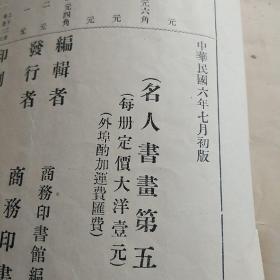 中華民國六年七月初版
（名人書畫第五
（每册定價大洋壹元）
（外埠酌加運費匯費）
編輯者
商務印書館編
發行者
商務印書
印刷
元六角
元
元四角
元
元二
元
一元